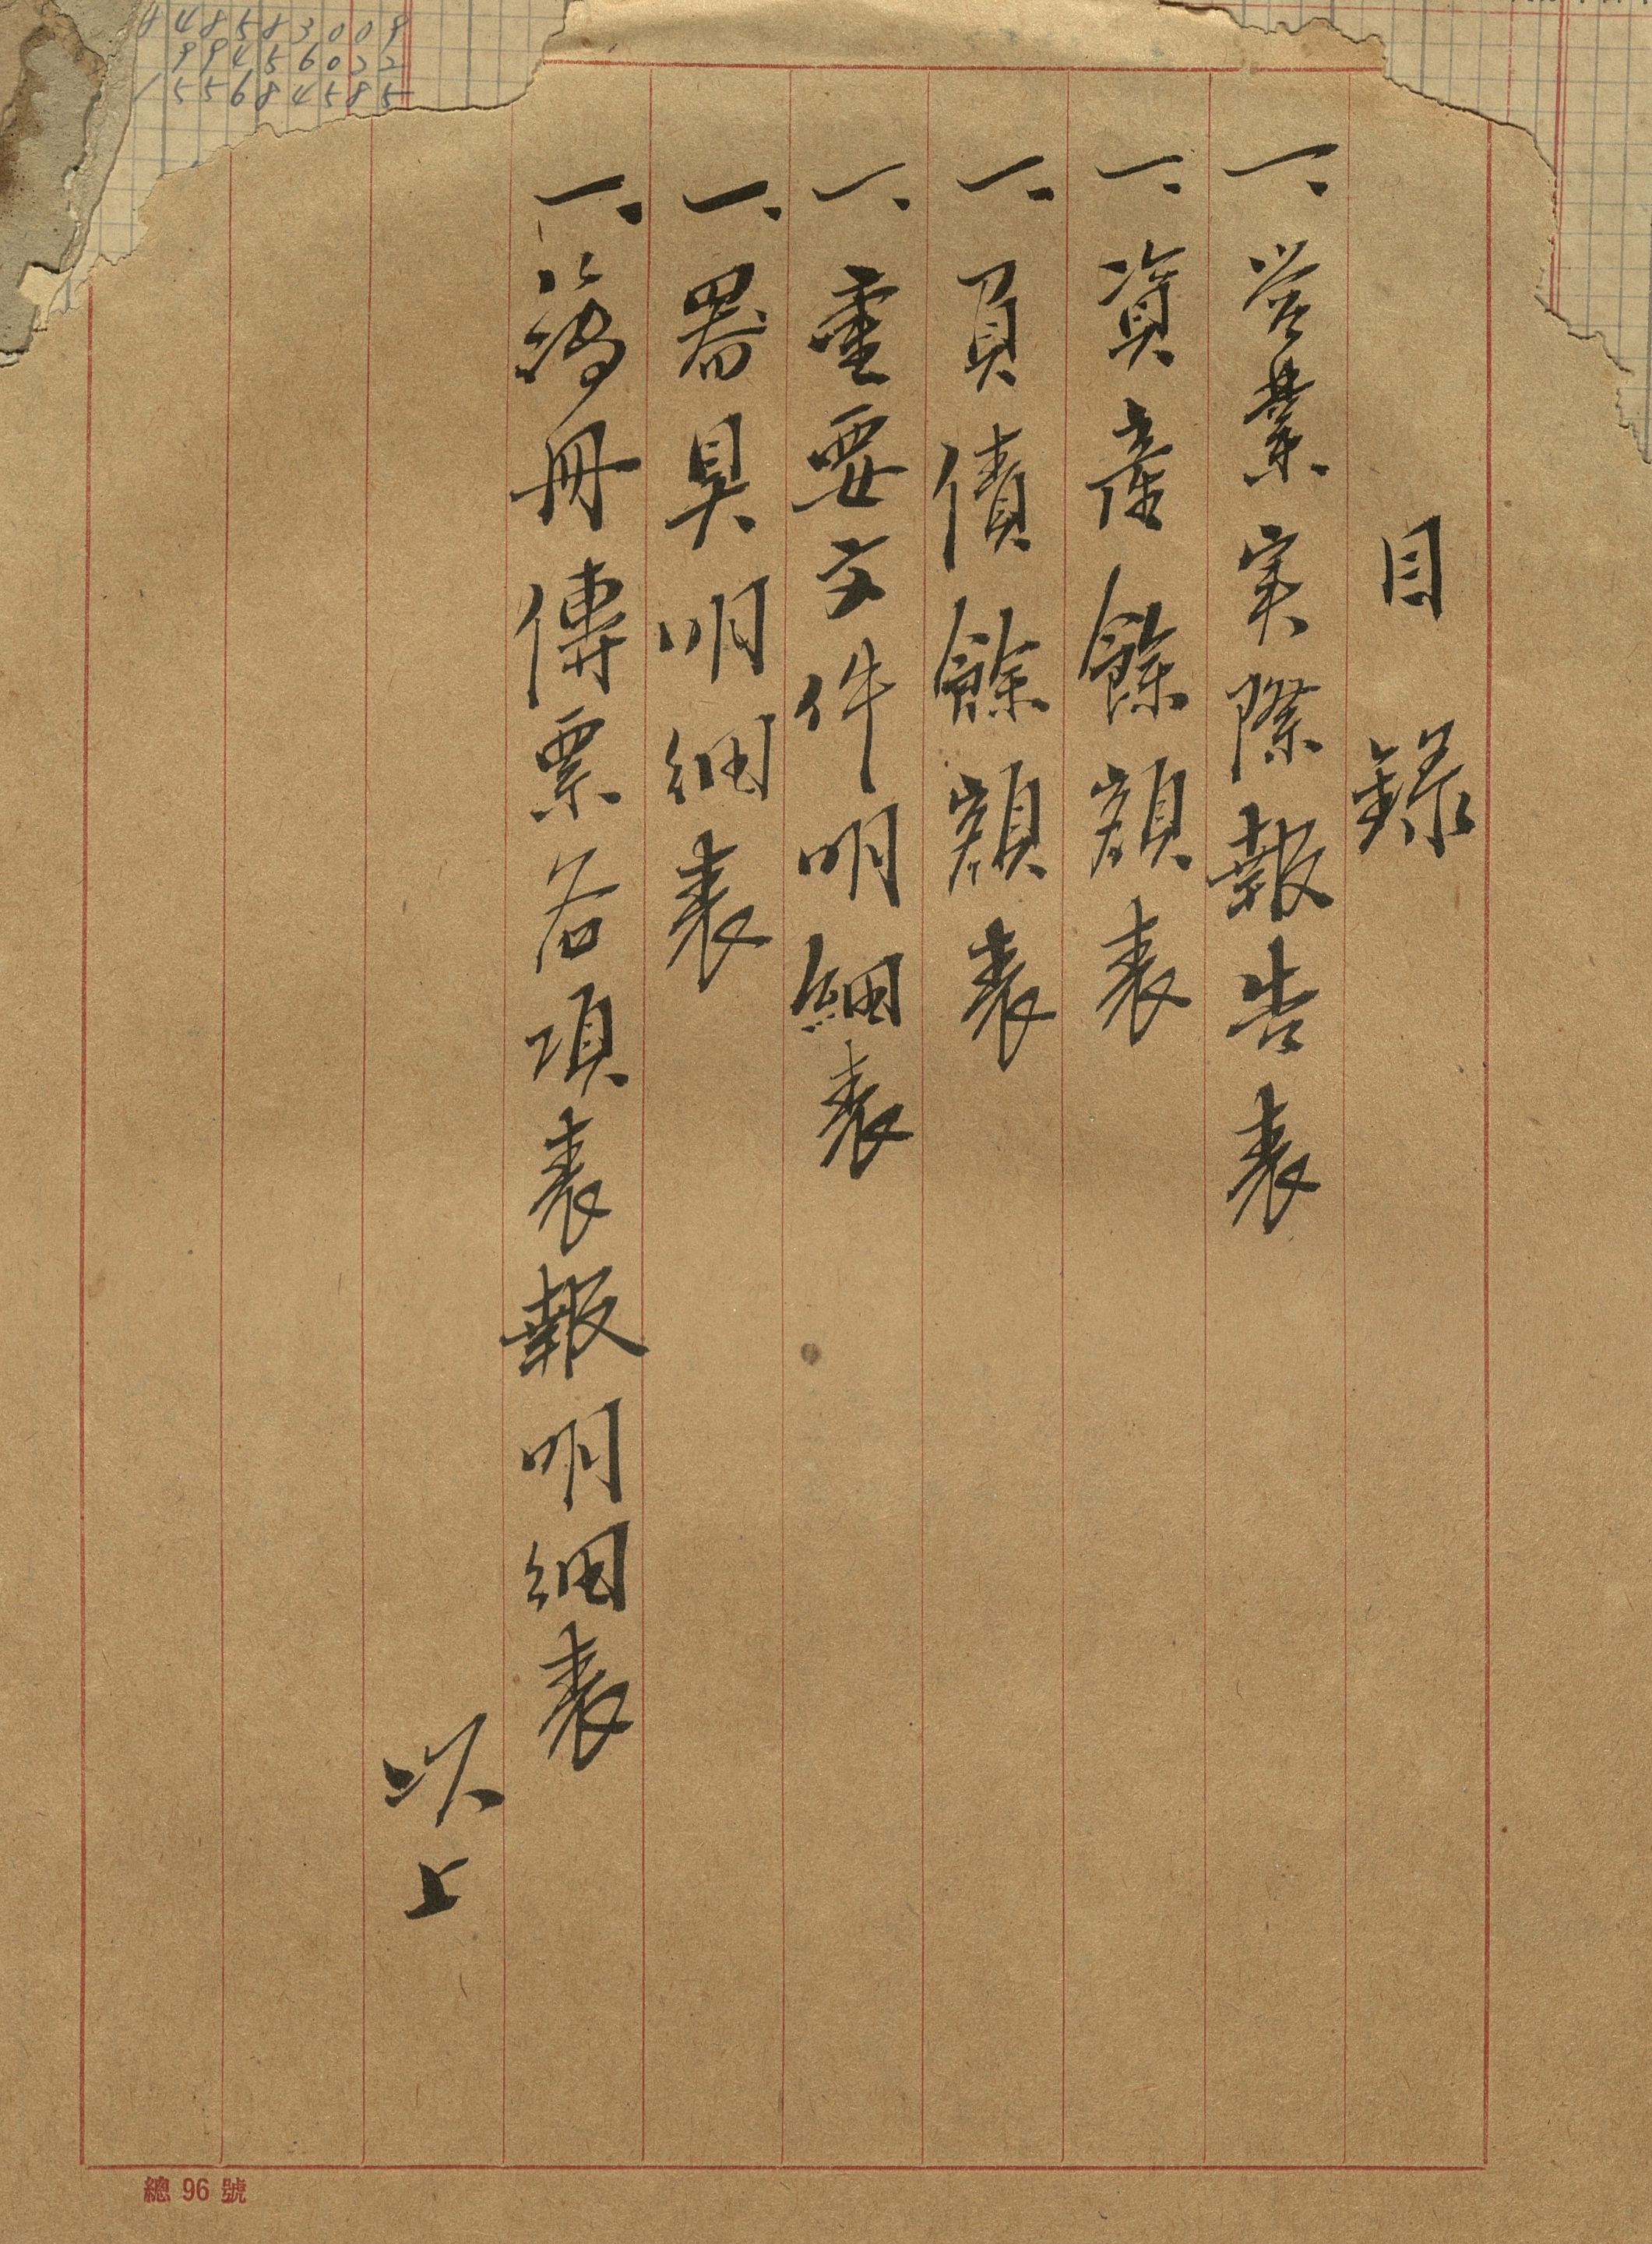 目錄
一、営業実際報告表
一、資産餘額表
一、負債餘額表
一、重要文件明細表
一、器具明細表
一、簿冊傳票各項表報明細表
以上
總 96 號
848583009
99456022
155684585